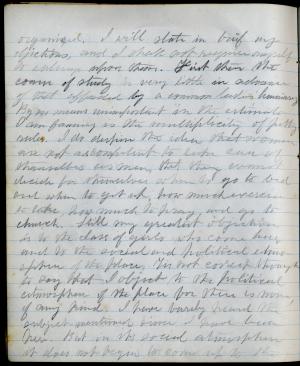 organized. I will state in brief my
objections, and I shall not require myself
to enlarge upon them. First then the
course of study is very little in advance
of that afforded by a common ladies Seminary.
By no means unimportant in the estimate
I am forming is the multiplicity of petty
rules. I do despise the idea that women
are not as competent to take care of
themselves as men, that they cannot
decide for themselves when to go to bed
and when to get up, how much exercise
to take, how much to pray and go to
church. Still my greatest objection
is to the class of girls who come here
and to the social and political atmos-
phere of the place. I'm not correct though
to say that I object to the political
atmosphere of the place for there is none,
of any kind. I have barely heard the
subject mentioned since I have been
here. But in the social atmosphere
it does not begin to come up to the